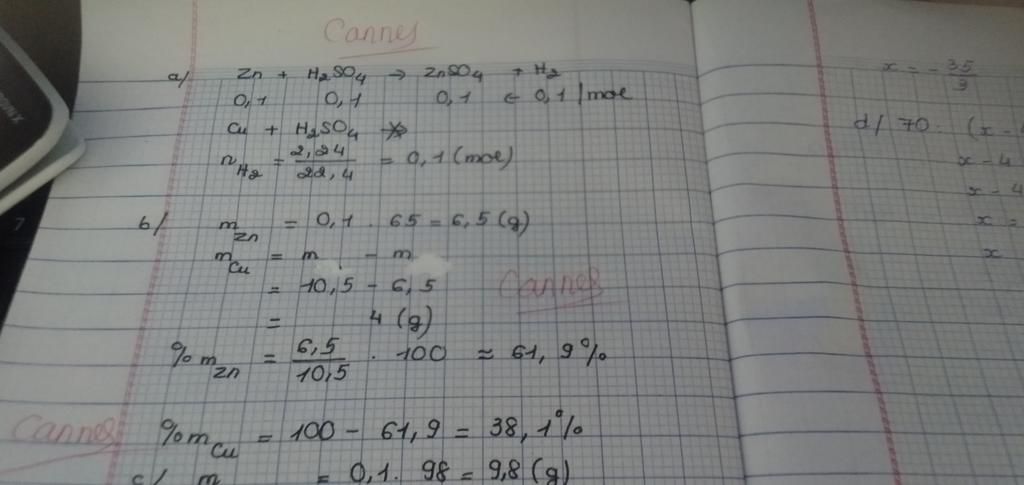 Cannes
a/ Zn + H₂SO₄ → ZnSO₄ + H₂
0,1 0,1 0,1 ← 0,1 /moe
Cu + H₂SO₄ ↛
n_H₂ = 2,24/22,4 = 0,1 (moe)
b/ m_Zn = 0,1 . 65 = 6,5 (g)
m_Cu = m - m
= 10,5 - 6,5
Cannes
= 4 (g)
%m_Zn = 6,5/10,5 . 100 ≈ 61,9%
Cannes
%m_Cu = 100 - 61,9 = 38,1%
c/ m = 0,1 . 98 = 9,8 (g)
x = - 35/9
d/ 70. (x -
x - 4
x - 4
x =
x
7